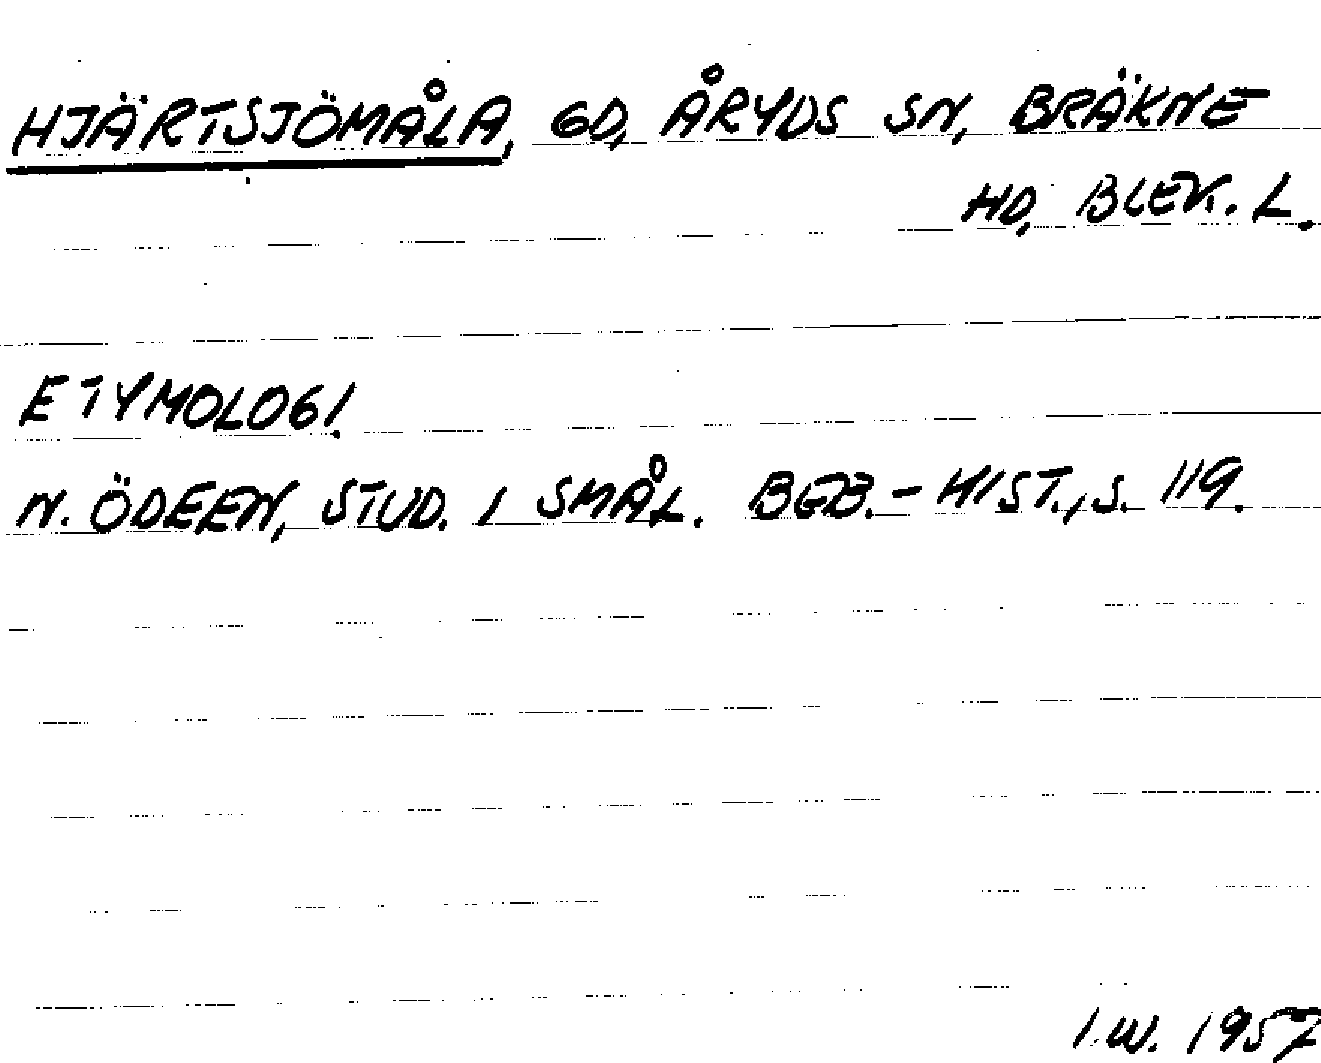 HJÄRTSJÖMÅLA, GD, ÅRYDS SN, BRÄKNE
HD, BLEK. L.
ETYMOLOGI.
N. ÖDEEN, STUD. I SMÅL. BEB.-HIST., S. 119.
I.W. 1957